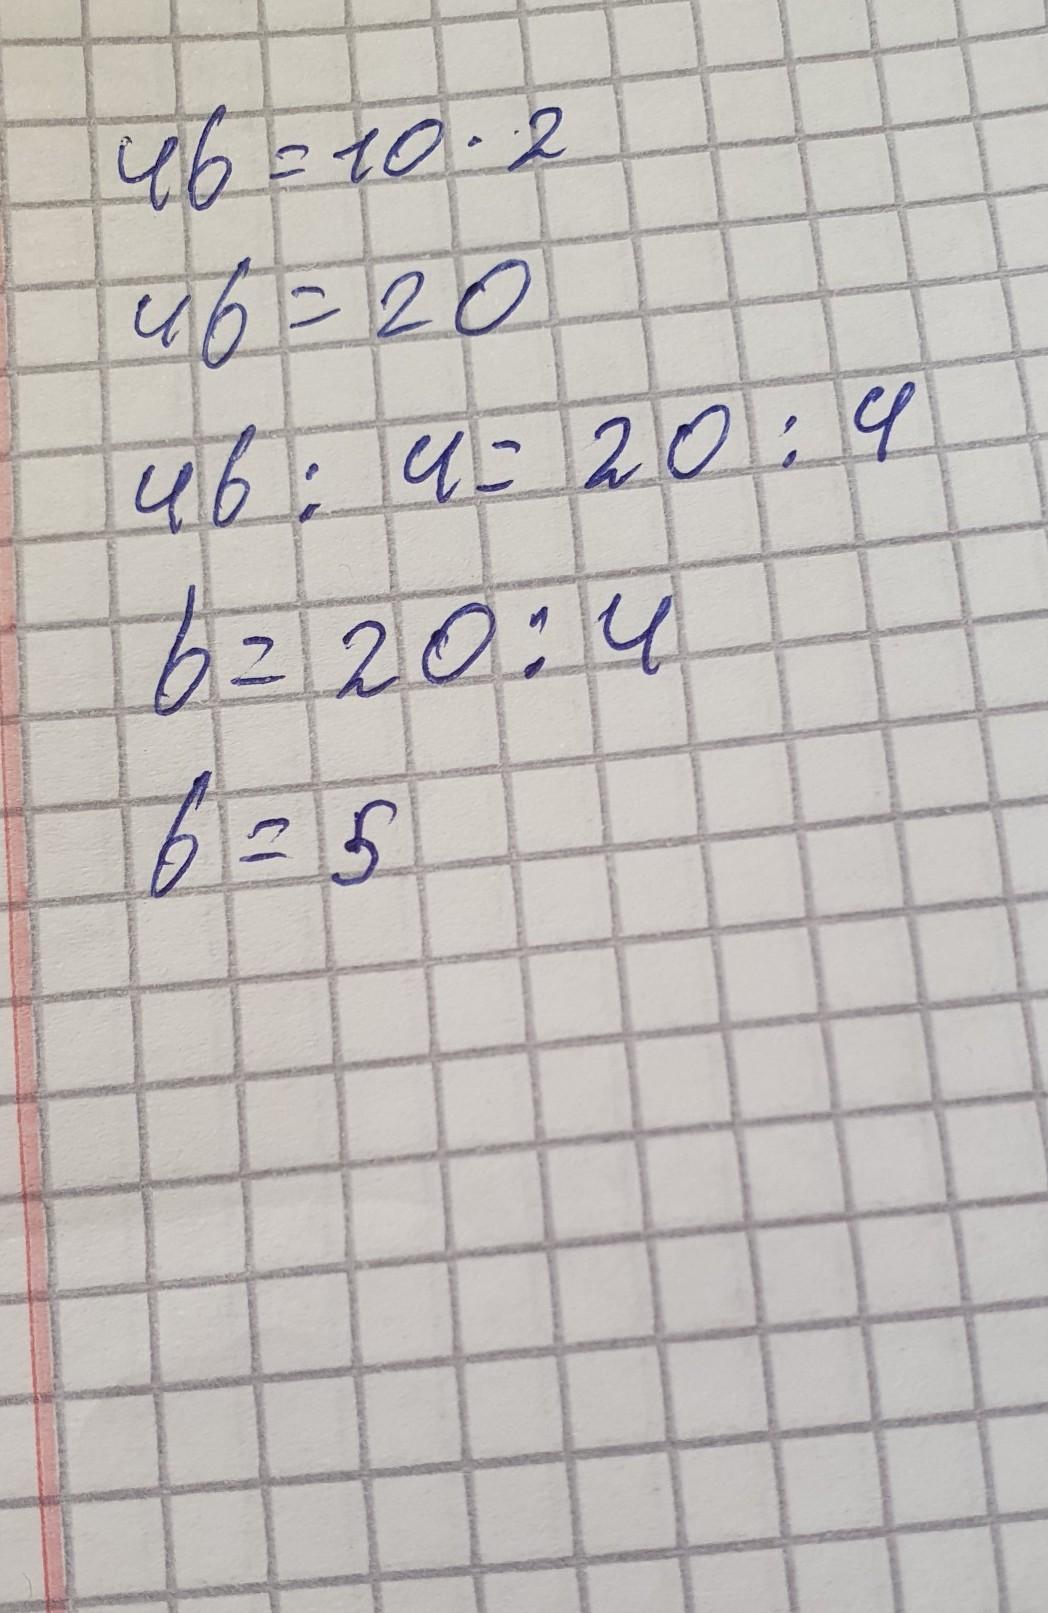 4b = 10 · 2
4b = 20
4b : 4 = 20 : 4
b = 20 : 4
b = 5